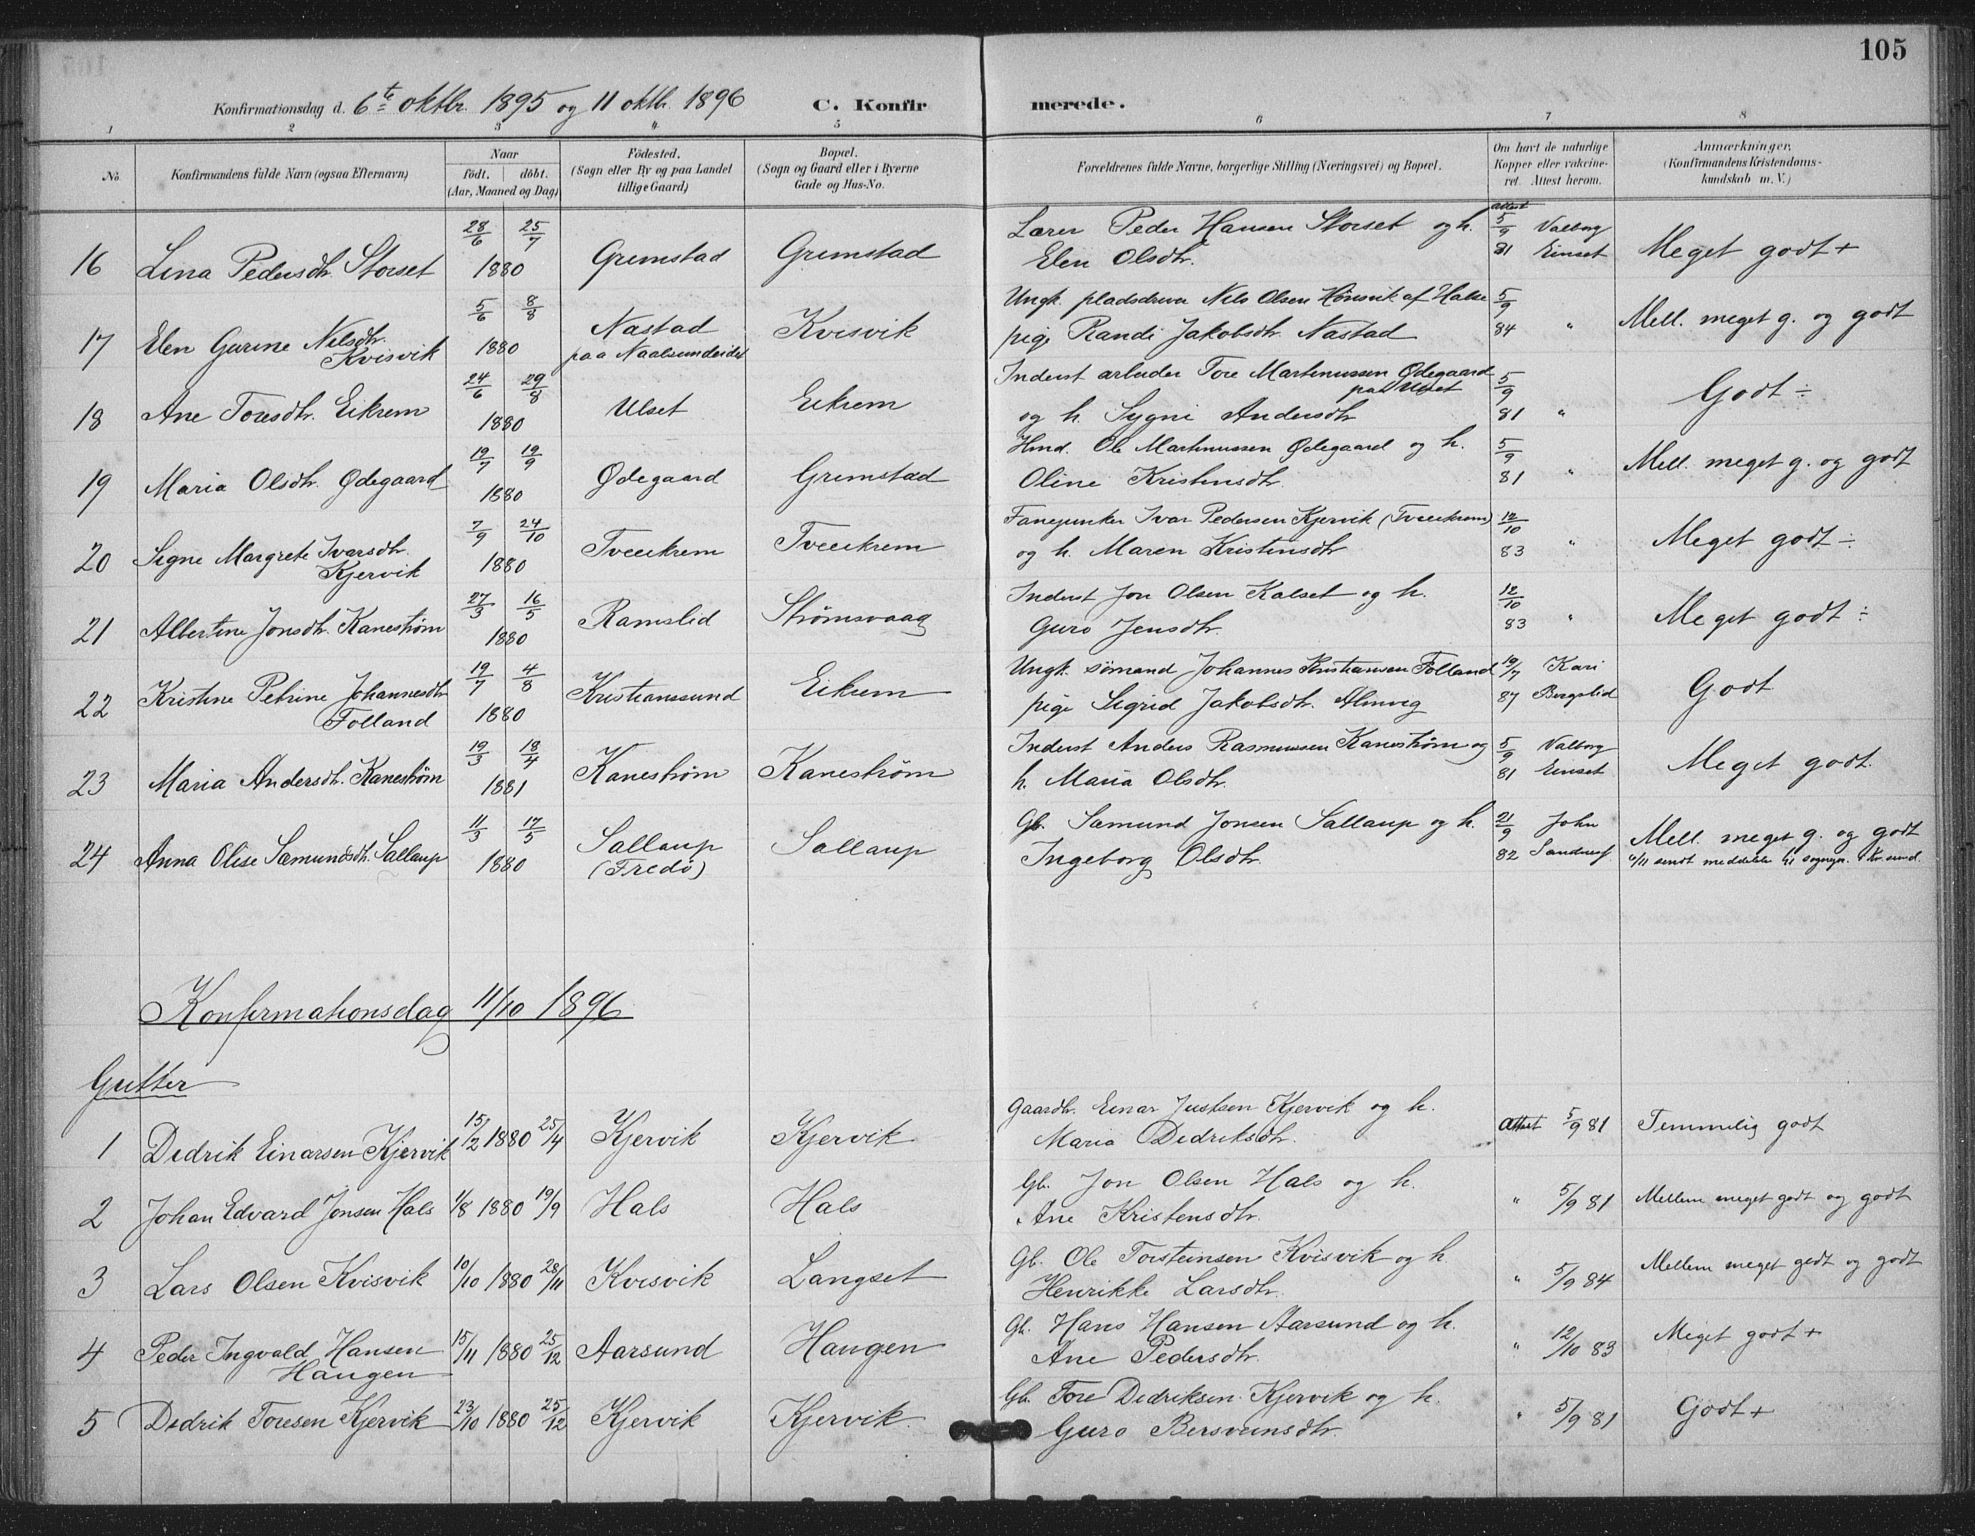 105
Konfirmationsdag d. 6te oktbr. 1895 og 11 oktb. 1896 C. Konfirmerede.
1 2 3 4 5 6 7 8
No. Konfirmandens fulde Navn (ogsaa Efternavn) Naar födt. döbt. (Aar, Maaned og Dag) Födested. (Sogn eller By og paa Landet tillige Gaard) Bopæl. (Sogn og Gaard eller i Byerne Gade og Hus-No. Forældrenes fulde Navne, borgerlige Stilling (Næringsvei) og Bopæl. Om havt de naturlige Kopper eller vakcineret. Attest herom. Anmærkninger, (Konfirmandens Kristendomskundskab m. V.)
16 Lina Pedersdtr. Storset 28/6 25/7 1880 Gremstad Gremstad Lærer Peder Hansen Storset og h. Elen Olsdtr. attest 5/9 81 Valborg Einset Meget godt +
17 Elen Gurine Nelsdtr. Kvisvik 5/6 8/8 1880 Nastad paa Naalsundeidet Kvisvik Ungk. pladsdreng Nels Olsen Hønsvik af Halse pige Randi Jakobsdtr. Nastad 5/9 84 " Mell. meget g. og godt
18 Ane Toresdtr. Eikrem 24/6 29/8 1880 Ulset Eikrem Inderst arbeider Tore Martinussen Ødegaard paa Ulset og h. Sygni Andersdtr 5/9 81 " Godt ÷
19 Maria Olsdtr. Ødegaard 19/7 19/9 1880 Ødegaard Gremstad Hmd. Ole Martinussen Ødegaard og h. Oline Kristensdtr. 5/9 81 " Mell. meget g. og godt
20 Signe Margrete Ivarsdtr. Kjervik 7/9 24/10 1880 Tveeikrem Tveeikrem Fanejunker Ivar Pedersen Kjervik (Tveeikrem) og h. Maren Kristensdtr 12/10 83 " Meget godt ÷
21 Albertine Jonsdtr. Kanestrøm 27/3 16/5 1880 Ramslid Strømsvaag Inderst Jon Olsen Kalset og h. Guro Jensdtr. 12/10 83 " Meget godt ÷
22 Kristine Petrine Johannesdtr Folland 19/7 4/8 1880 Kristianssund Eikrem Ungk. sømand Johannes Kristiansen Folland pige Sigrid Jakobsdtr. Almvig 19/7 87 Kari Bergslid Godt
23 Maria Andersdtr. Kanestrøm 19/3 18/4 1881 Kanestrøm Kanestrøm Inderst Anders Rasmussen Kanestrøm og h. Maria Olsdtr. 5/9 81 Valborg Einset Meget godt.
24 Anna Olise Samundsdtr. Sallaup 11/3 17/5 1880 Sallaup (Fredø) Sallaup Gb. Samund Jonsen Sallaup og h. Ingeborg Olsdtr. 21/9 82 John Mell. meget g. og godt
Konfirmationsdag 11/10 1896
Gutter
1 Dedrik Einarsen Kjervik 15/2 1880 25/4 Kjervik Kjervik Gaardbr. Einar Justsen Kjervik og h. Maria Dedriksdtr. Attest 5/9 81 Temmelig godt
2 Johan Edvard Jonsen Hals 1/8 1880 19/9 Hals Hals Gb. Jon Olsen Hals og h. Ane Kristensdtr. " 5/9 81 Mellem meget godt og godt
3 Lars Olsen Kvisvik 10/10 1880 28/11 Kvisvik Langset Gb. Ole Torsteinsen Kvisvik og h Henrikke Larsdtr. " 5/9 84 Mellem meget godt og godt
4 Peder Ingvald Hansen Haugen 15/11 1880 25/12 Aarsund Haugen Gb. Hans Hansen Aarsund og h. Ane Pedersdtr. " 12/10 83 Meget godt +
5 Dedrik Toresen Kjervik 23/10 1880 25/12 Kjervik Kjervik Gb. Tore Dedriksen Kjervik og h. Guro Bersveinsdtr. " 5/9 81 Godt +